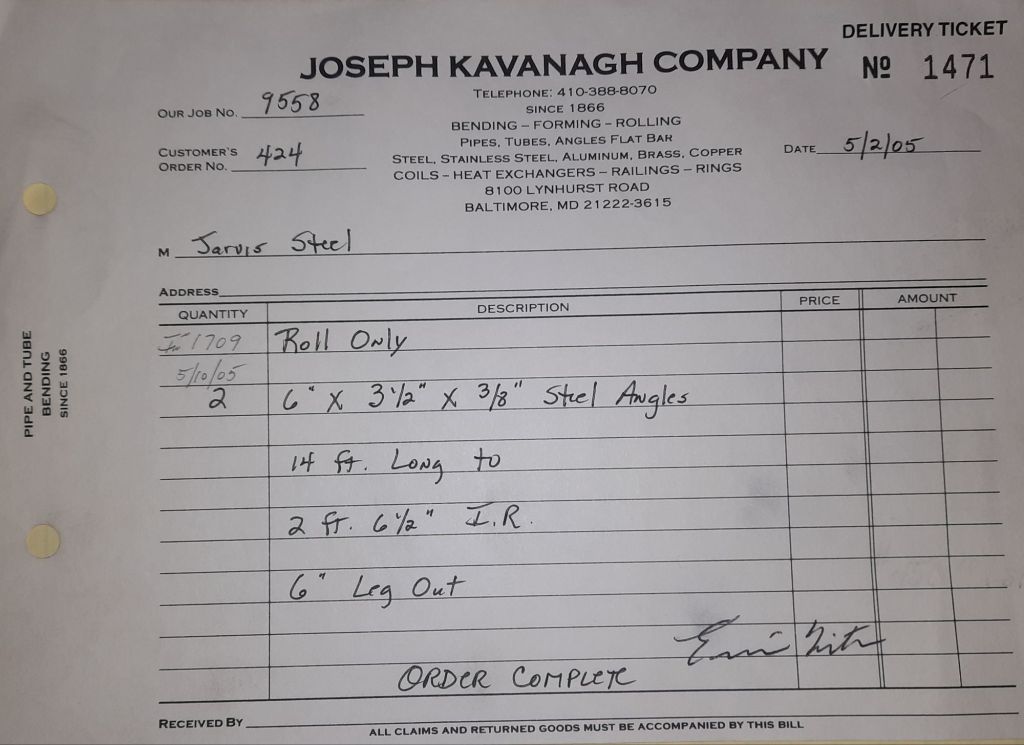 DELIVERY TICKET
JOSEPH KAVANAGH COMPANY
Nº 1471
TELEPHONE: 410-388-8070
SINCE 1866
BENDING – FORMING – ROLLING
PIPES, TUBES, ANGLES FLAT BAR
STEEL, STAINLESS STEEL, ALUMINUM, BRASS, COPPER
COILS – HEAT EXCHANGERS – RAILINGS – RINGS
8100 LYNHURST ROAD
BALTIMORE, MD 21222-3615
OUR JOB NO. 9558
CUSTOMER'S
ORDER NO. 424
DATE 5/2/05
M Jarvis Steel
ADDRESS
QUANTITY DESCRIPTION PRICE AMOUNT
1709 Roll Only
5/10/05
2 6" X 3 1/2" X 3/8" Steel Angles
14 ft. Long to
2 ft. 6 1/2" I.R.
6" Leg Out
ORDER COMPLETE
RECEIVED BY
ALL CLAIMS AND RETURNED GOODS MUST BE ACCOMPANIED BY THIS BILL
PIPE AND TUBE
BENDING
SINCE 1866